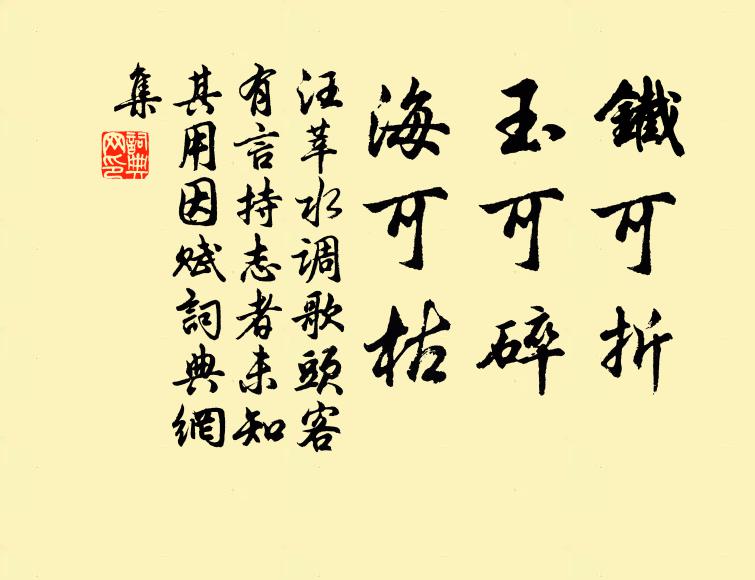 鐵可折
玉可碎
海可枯
汪莘水调歌頭客
有言持志者未知
其用因赋詞典網
集
詞典
网印